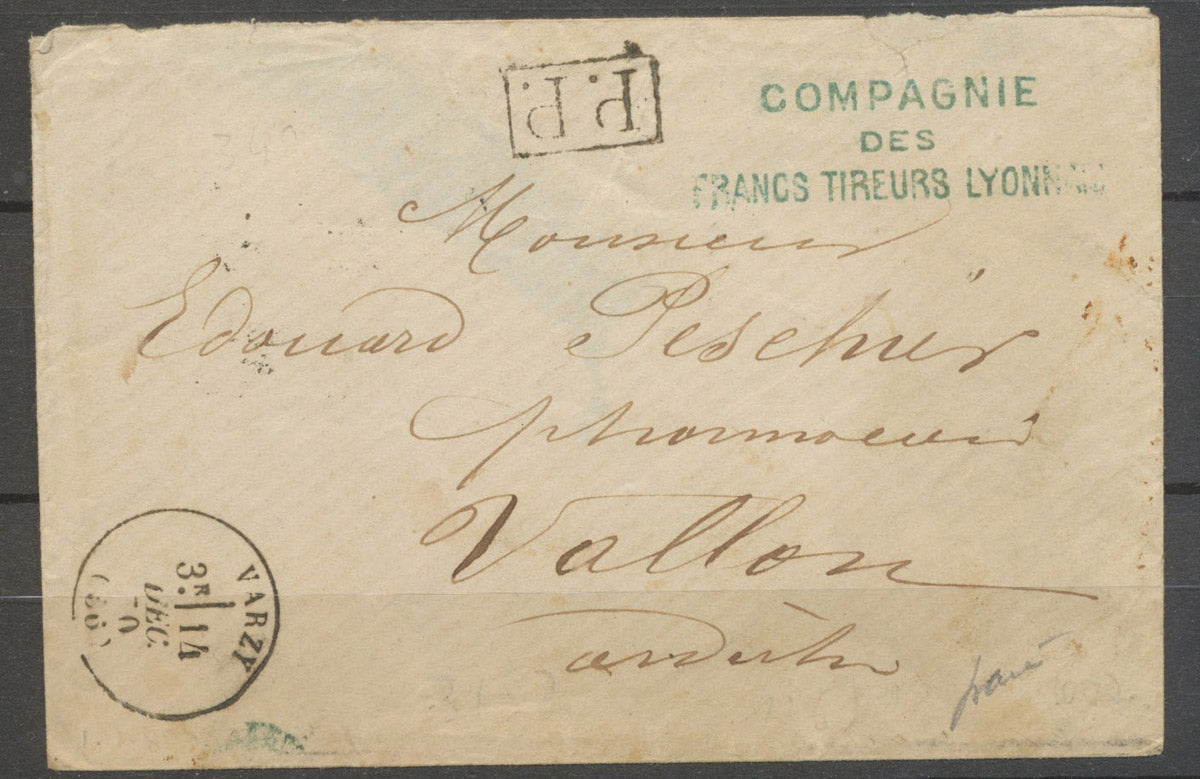 P.P.
COMPAGNIE
DES
FRANCS TIREURS LYONNAIS
Monsieur
Edouard Peschier
pharmacien
Vallon
ardèche
VARZY
3E 14
DEC.
70